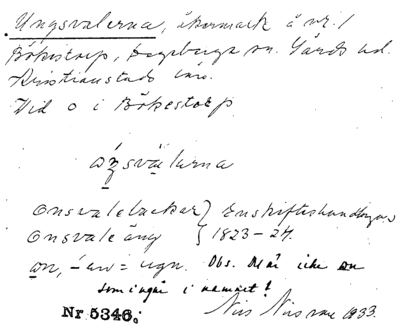 Ungsvalerna, åkermark å nr. 1
Bökestorp, Degeberga sn. Gärds hd.
Kristianstads län.
Vid o i Bökestorp
ònsvålarna
Onsvalelackar } Enskifteshandlingar
Onsvaleäng } 1823–24.
on, -en = ugn. Obs. Det är icke on
som ingår i namnet!
Nr 5346. Nils Nilsson 1933.